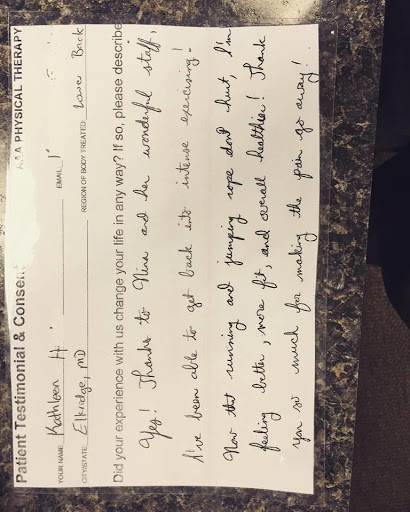 Patient Testimonial & Consent AAA PHYSICAL THERAPY
YOUR NAME: Kathleen H EMAIL:
CITY/STATE: Elkridge, MD REGION OF BODY TREATED: Lower Back
Did your experience with us change your life in any way? If so, please describe
Yes! Thanks to Nina and her wonderful staff,
I've been able to get back into intense exercising!
Now that running and jumping rope don't hurt, I'm
feeling better, more fit, and overall healthier! Thank
you so much for making the pain go away!